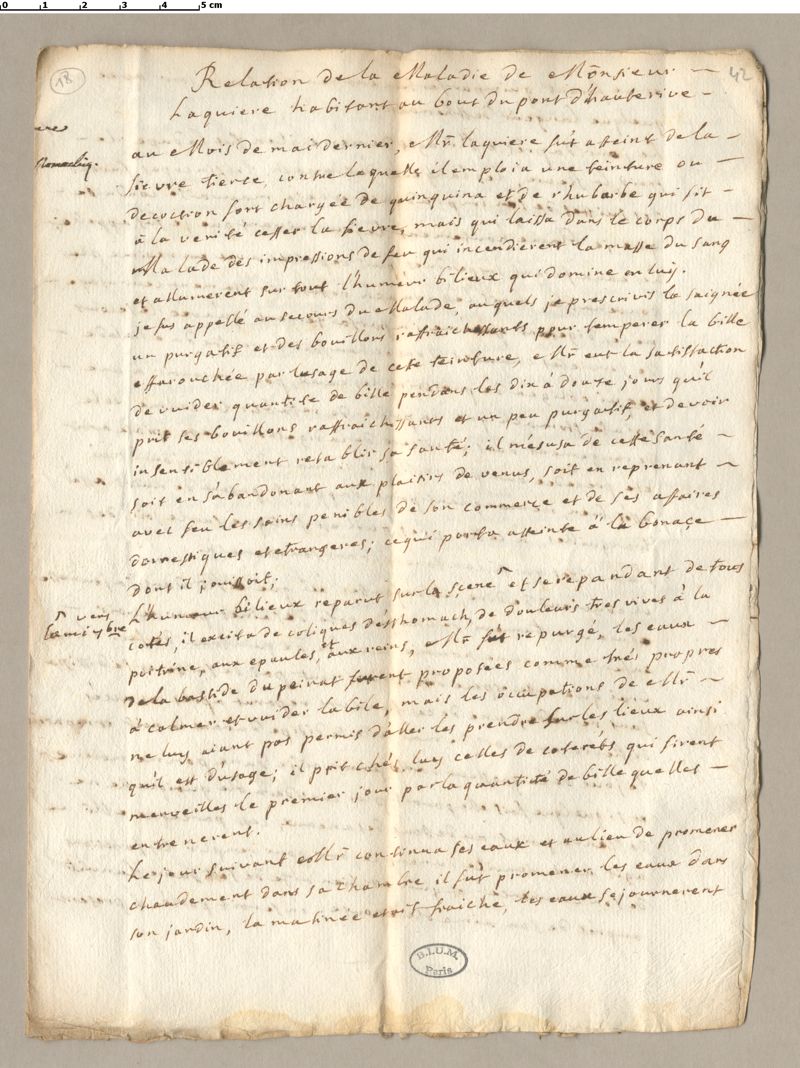 0 1 2 3 4 5 cm
18
42
Relation de la Maladie de Monsieur
Laquiere habitant au bout du pont d'hauterive
au Mois de mai dernier, Mr. laquiere fut atteint de la
fievre tierce, contre laquelle il emploia une teinture ou
decoction fort chargée de quinquina et de rhubarbe qui fit
à la verité cesser la fievre, mais qui laissa dans le corps du
Malade des impressions de feu qui incendierent la masse du sang
et allumerent sur tout l'humeur bilieux qui domine en luy.
je fus appellé au secours du Malade, auquels je prescrivis la saignée
un purgatif et des bouillons raffraichissants pour temperer la bille
effarouchée par l'usage de cete teinture, Mr. eut la satisfaction
de vuider quantité de bille pendans les dix à douze jours qu'il
prit ses bouillons raffraichissants et un peu purgatif, et de voir
insensiblement retablir sa santé; il mesusa de cette santé
soit en s'abandonant aux plaisirs de venus, soit en reprenant
avec feu les soins penibles de son commerce et de ses affaires
domestiques et etrangeres; ce qui porta atteinte à la bonaçe
dont il jouissoit;
L'humeur bilieux reparut sur la scene et se repandant de tous
vers
la mi 7bre
cotés, il excita de coliques d'esthomach, de douleurs tres vives à la
poitrine, aux epaules, et aux reins, Mr. fut repurgé, les eaux
de la bastide du peirat furent proposées comme trés propres
à calmer et vuider la bile, mais les occupations de Mr.
ne luy aiant pas permis d'aller les prendre sur les lieux ainsi
qu'il est d'usage; il prit chés luy celles de coterets qui firent
merveilles le premier jour par la quantité de bille quelles
entrenerent.
Le jour suivant Mr. continua ses eaux et au lieu de promener
chaudement dans sa chambre, il fut promener les eaux dans
son jardin, la matinée etoit fraiche, les eaux sejournerent
B.I.U.M.
Paris